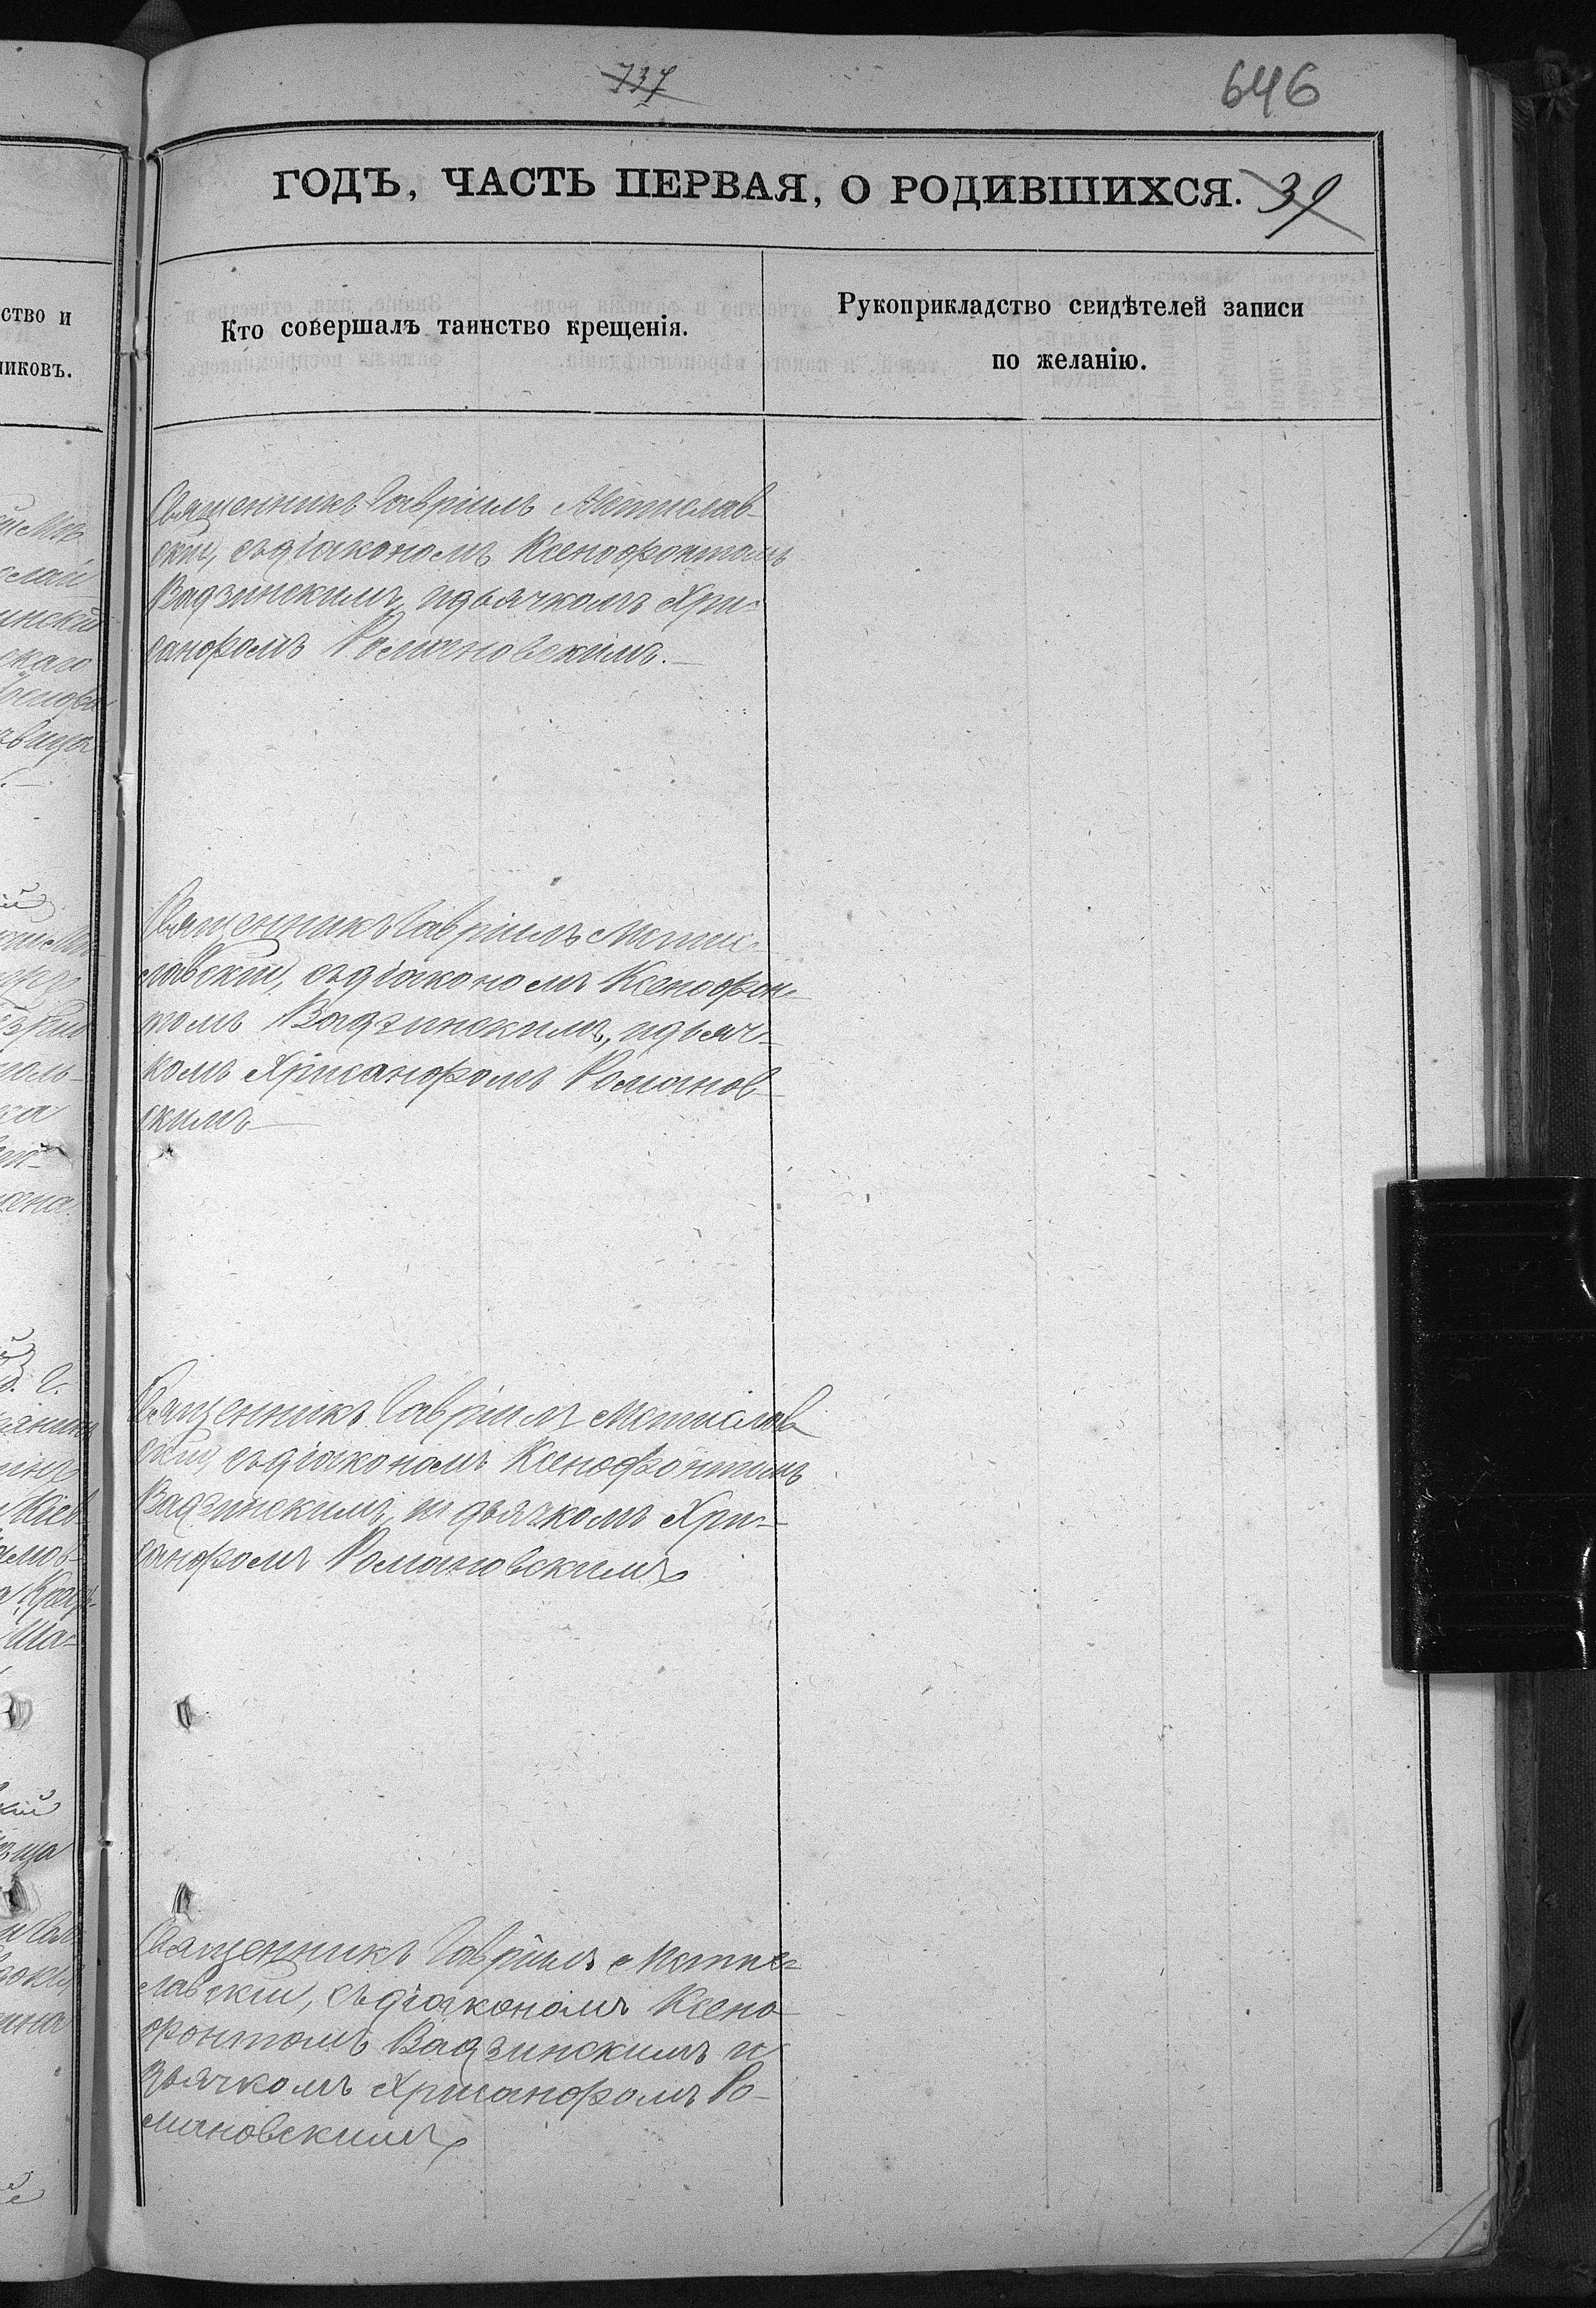 737
646
ГОДЪ, ЧАСТЬ ПЕРВАЯ, О РОДИВШИХСЯ. 39
ство и
никовъ.
Кто совершалъ таинство крещенія.
Рукоприкладство свидѣтелей записи
по желанію.
Священникъ Гавріилъ Мстислав-
скій, съ діакономъ Ксенофонтомъ
Вадзинскимъ, и дьячкомъ Хри-
санфомъ Романовскимъ.
Священникъ Гавріилъ Мсти-
славскій, съ діакономъ Ксенофон-
томъ Вадзинскимъ, и дьяч-
комъ Хрисанфомъ Романов-
скимъ
Священникъ Гавріилъ Мстислав
скій, съ діакономъ Ксенофонтомъ
Вадзинскимъ, и дьячкомъ Хри-
санфомъ Романовскимъ
Священникъ Гавріилъ Мсти-
славскій, съ діакономъ Ксено
фонтомъ Вадзинскимъ и
дьячкомъ Хрисанфомъ Ро-
мановскимъ